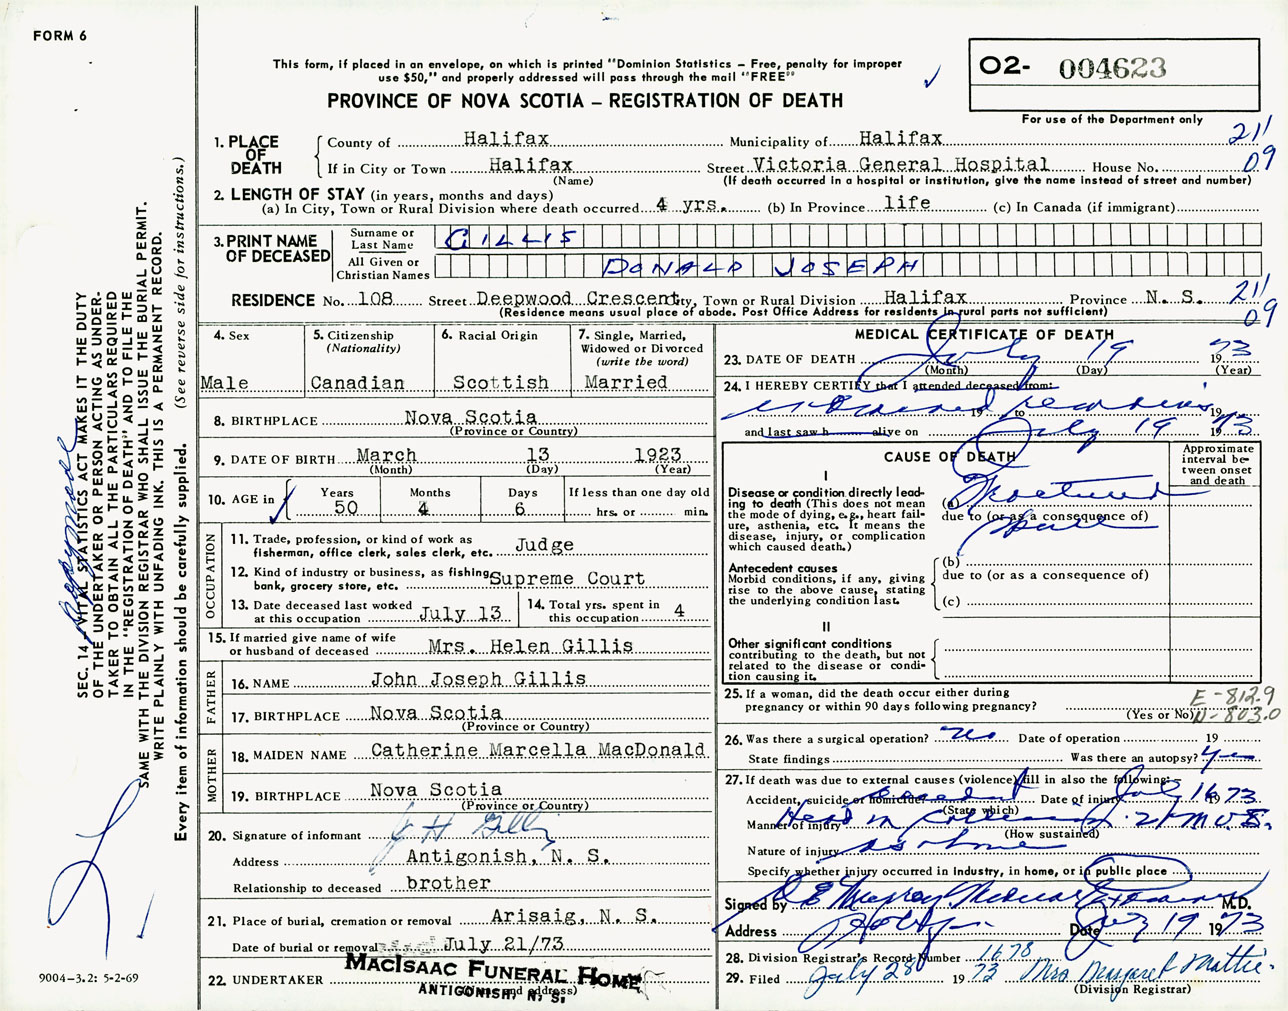 FORM 6
This form, if placed in an envelope, on which is printed "Dominion Statistics – Free, penalty for improper
use $50," and properly addressed will pass through the mail "FREE"
PROVINCE OF NOVA SCOTIA – REGISTRATION OF DEATH
O2- 004623
For use of the Department only
1. PLACE OF DEATH
County of Halifax Municipality of Halifax 211
If in City or Town Halifax Street Victoria General Hospital House No. 09
(Name) (If death occurred in a hospital or institution, give the name instead of street and number)
2. LENGTH OF STAY (in years, months and days)
(a) In City, Town or Rural Division where death occurred 4 yrs. (b) In Province life (c) In Canada (if immigrant)
3. PRINT NAME OF DECEASED
Surname or Last Name GILLIS
All Given or Christian Names DONALD JOSEPH
RESIDENCE No. 108 Street Deepwood Crescent City, Town or Rural Division Halifax Province N. S. 211
(Residence means usual place of abode. Post Office Address for residents in rural parts not sufficient) 09
4. Sex
Male
5. Citizenship
(Nationality)
Canadian
6. Racial Origin
Scottish
7. Single, Married,
Widowed or Divorced
(write the word)
Married
8. BIRTHPLACE Nova Scotia
(Province or Country)
9. DATE OF BIRTH March 13 1923
(Month) (Day) (Year)
10. AGE in
Years Months Days If less than one day old
50 4 6 hrs. or min.
OCCUPATION
11. Trade, profession, or kind of work as
fisherman, office clerk, sales clerk, etc. Judge
12. Kind of industry or business, as fishing,
bank, grocery store, etc. Supreme Court
13. Date deceased last worked
at this occupation July 13
14. Total yrs. spent in
this occupation 4
15. If married give name of wife
or husband of deceased Mrs. Helen Gillis
FATHER
16. NAME John Joseph Gillis
17. BIRTHPLACE Nova Scotia
(Province or Country)
MOTHER
18. MAIDEN NAME Catherine Marcella MacDonald
19. BIRTHPLACE Nova Scotia
(Province or Country)
20. Signature of informant
Address Antigonish, N. S.
Relationship to deceased brother
21. Place of burial, cremation or removal Arisaig, N. S.
Date of burial or removal July 21/73
22. UNDERTAKER MacIsaac Funeral Home
ANTIGONISH, N. S.
(Name and address)
MEDICAL CERTIFICATE OF DEATH
23. DATE OF DEATH July 19 1973
(Month) (Day) (Year)
24. I HEREBY CERTIFY that I attended deceased from:
examined remains 19 to 19
and last saw h alive on July 19 1973
CAUSE OF DEATH
Approximate
interval be-
tween onset
and death
I
Disease or condition directly lead-
ing to death (This does not mean
the mode of dying, e.g., heart fail-
ure, asthenia, etc. It means the
disease, injury, or complication
which caused death.)
(a) Fractured
due to (or as a consequence of)
Antecedent causes
Morbid conditions, if any, giving
rise to the above cause, stating
the underlying condition last.
(b)
due to (or as a consequence of)
(c)
II
Other significant conditions
contributing to the death, but not
related to the disease or condi-
tion causing it.
25. If a woman, did the death occur either during
pregnancy or within 90 days following pregnancy?
(Yes or No)
E-812.9
N-803.0
26. Was there a surgical operation? no Date of operation 19
State findings Was there an autopsy? yes
27. If death was due to external causes (violence) fill in also the following:
Accident, suicide or homicide? accident Date of injury July 16 1973
(State which)
Manner of injury Head on collision. 2 M.V.
(How sustained)
Nature of injury as above
Specify whether injury occurred in industry, in home, or in public place
Signed by Medical Examiner M.D.
Address Date July 19 1973
28. Division Registrar's Record Number 1678
29. Filed July 28 1973 Mrs Margaret Mattie
(Division Registrar)
SEC. 14 – VITAL STATISTICS ACT MAKES IT THE DUTY
OF THE UNDERTAKER OR PERSON ACTING AS UNDER-
TAKER TO OBTAIN ALL THE PARTICULARS REQUIRED
IN THE "REGISTRATION OF DEATH" AND TO FILE THE
SAME WITH THE DIVISION REGISTRAR WHO SHALL ISSUE THE BURIAL PERMIT.
WRITE PLAINLY WITH UNFADING INK. THIS IS A PERMANENT RECORD.
Every item of information should be carefully supplied. (See reverse side for instructions.)
9004-3.2: 5-2-69